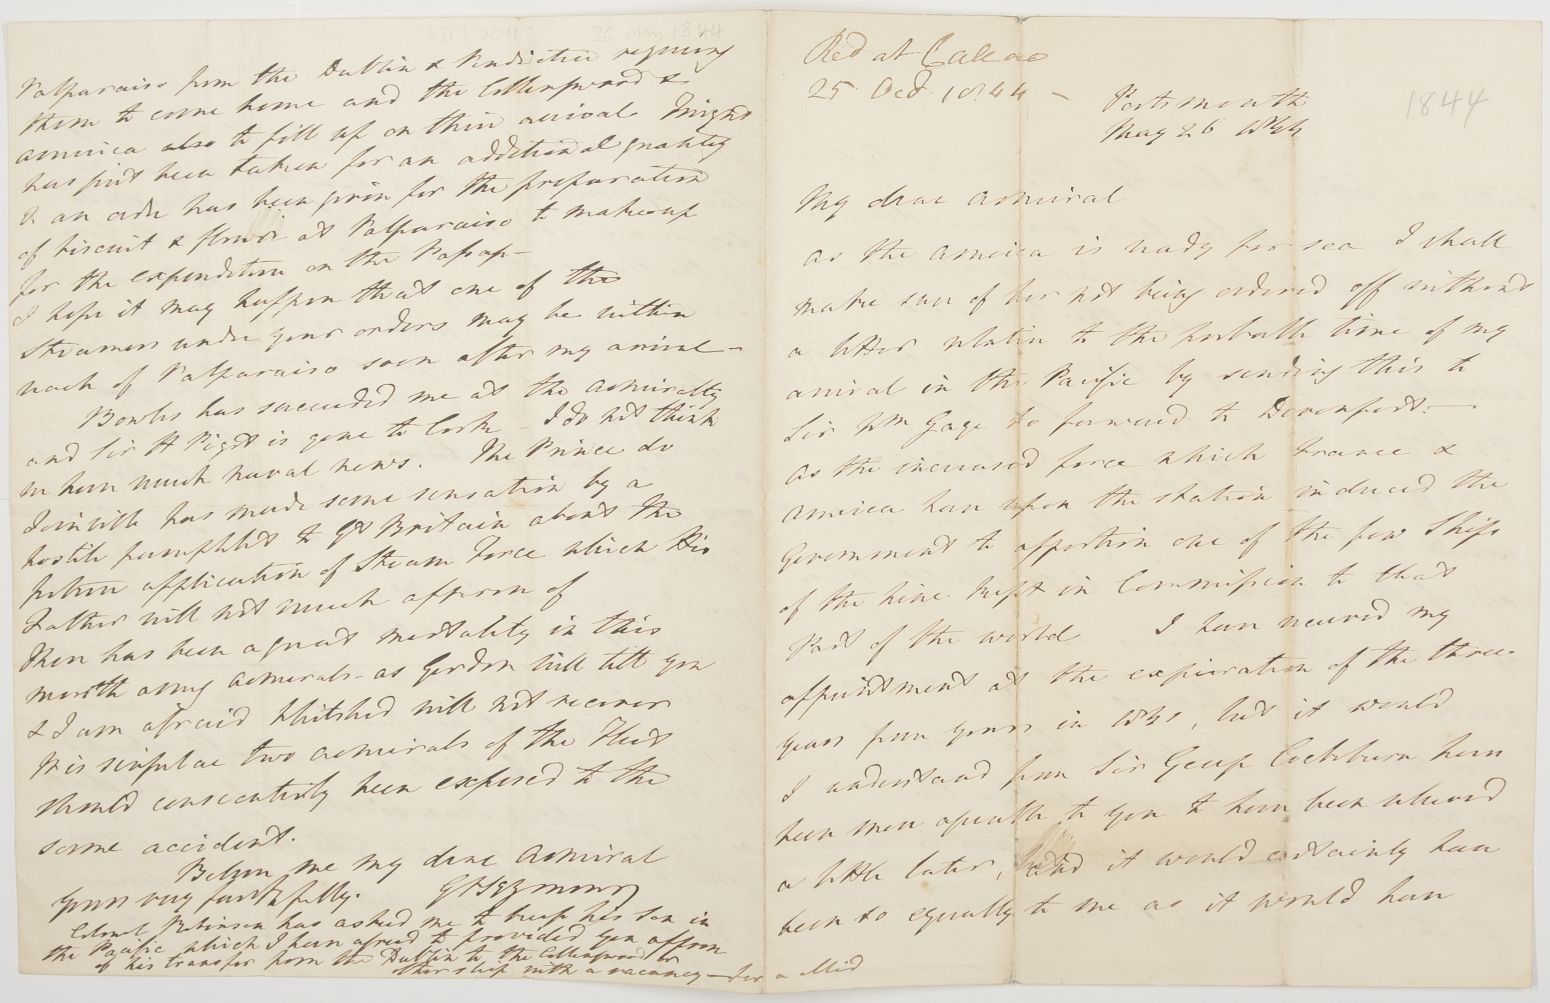 Recd at Callao
25 Oct 1844 –
1844
Portsmouth
May 26 1844
My dear Admiral
As the America is ready for sea I shall
make sure of her not being ordered off without
a letter relative to the probable time of my
arrival in the Pacific by sending this to
Sir Wm Gage to forward to Devonport. –
As the increased force which France &
America have upon the station induced the
Government to apportion one of the few Ships
of the Line kept in Commission to that
Part of the world I have received my
appointment at the expiration of the three
years from yours in 1841, but it would
I understand from Sir George Cockburn have
been more agreeable to you to have been relieved
a little later, and it would certainly have
been so equally to me as it would have
26 May 1844
Valparaiso from the Dublin & Vindictive requiring
them to come home and the Collingwood &
America also to fill up on their arrival
has just been taken for an additional quantity
& an order has been given for the preparation
of biscuit & flour at Valparaiso to make up
for the expenditure on the Passage –
I hope it may happen that one of the
Steamers under your orders may be within
reach of Valparaiso soon after my arrival –
Bowles has succeeded me at the Admiralty
and Sir H Pigot is gone to Cork – I do not think
we have much naval news. The Prince de
Joinville has made some sensation by a
hostile pamphlet to Gt Britain about the
future application of Steam Force which His
Father will not much approve of
There has been a great mortality in this
month among Admirals – as Gordon will tell you
& I am afraid Whitshed will not recover
It is singular two Admirals of the Fleet
should consecutively been exposed to the
same accident.
Believe me my dear Admiral
yours very faithfully. G F Seymour
Colonel Robinson has asked me to keep his Son in
the Pacific which I have agreed to provided you approve
of his transfer from the Dublin to the Collingwood or
other ship with a vacancy – for a Mid